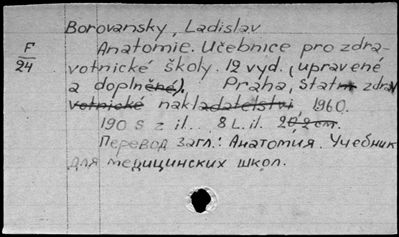 Borovansky, Ladislav
F
24
Anatomie. Učebnice pro zdra-
votnické školy. 12 vyd. (upravené
a doplněné). Praha, Statn zdra
votnické nakladatelství, 1960.
190 s z il.. 8 L. il. 20,2 cm.
Перевод загл.: Анатомия. Учебник
для медицинских школ.